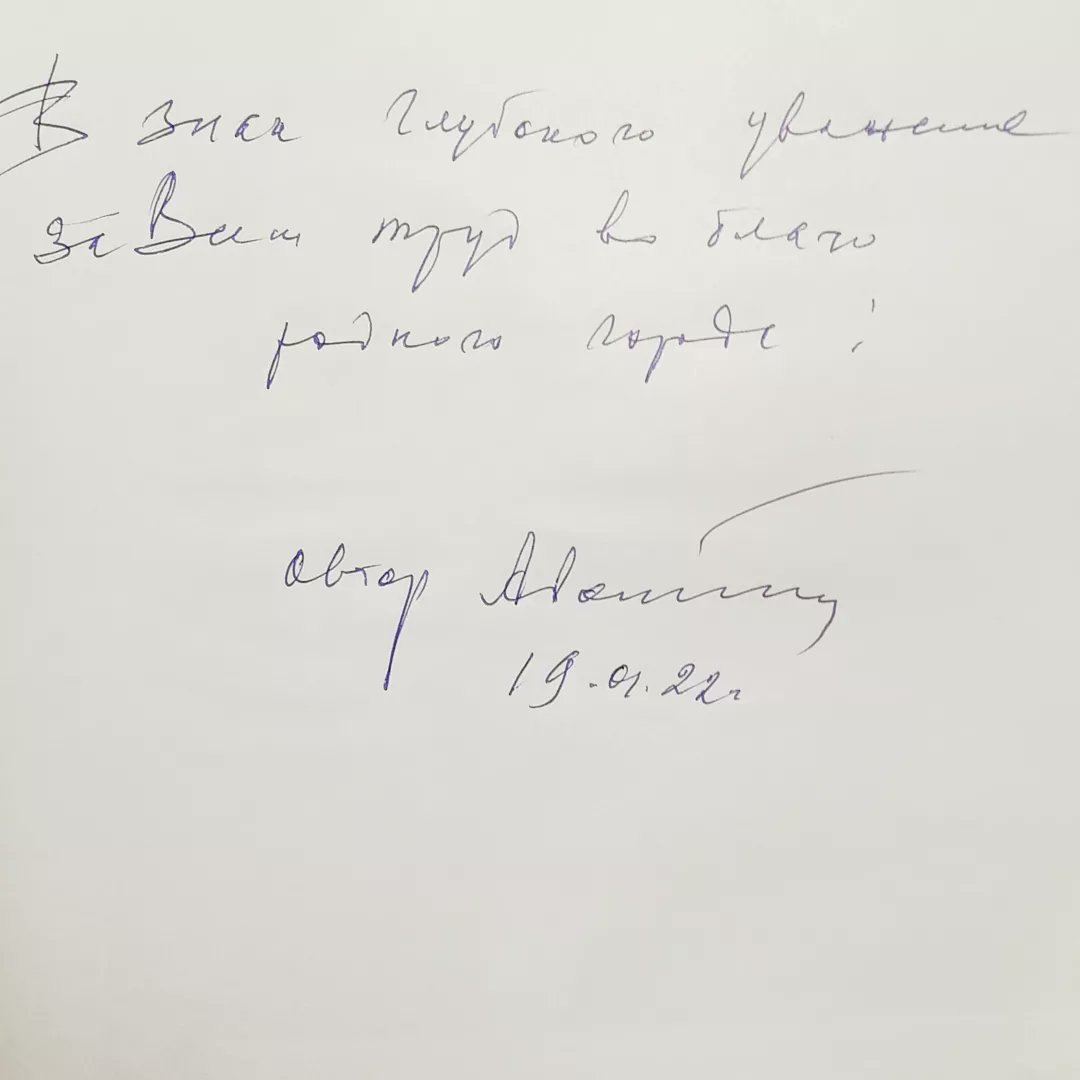 В знак глубокого уважения
за Ваш труд во благо
родного города!
автор
19.01.22г